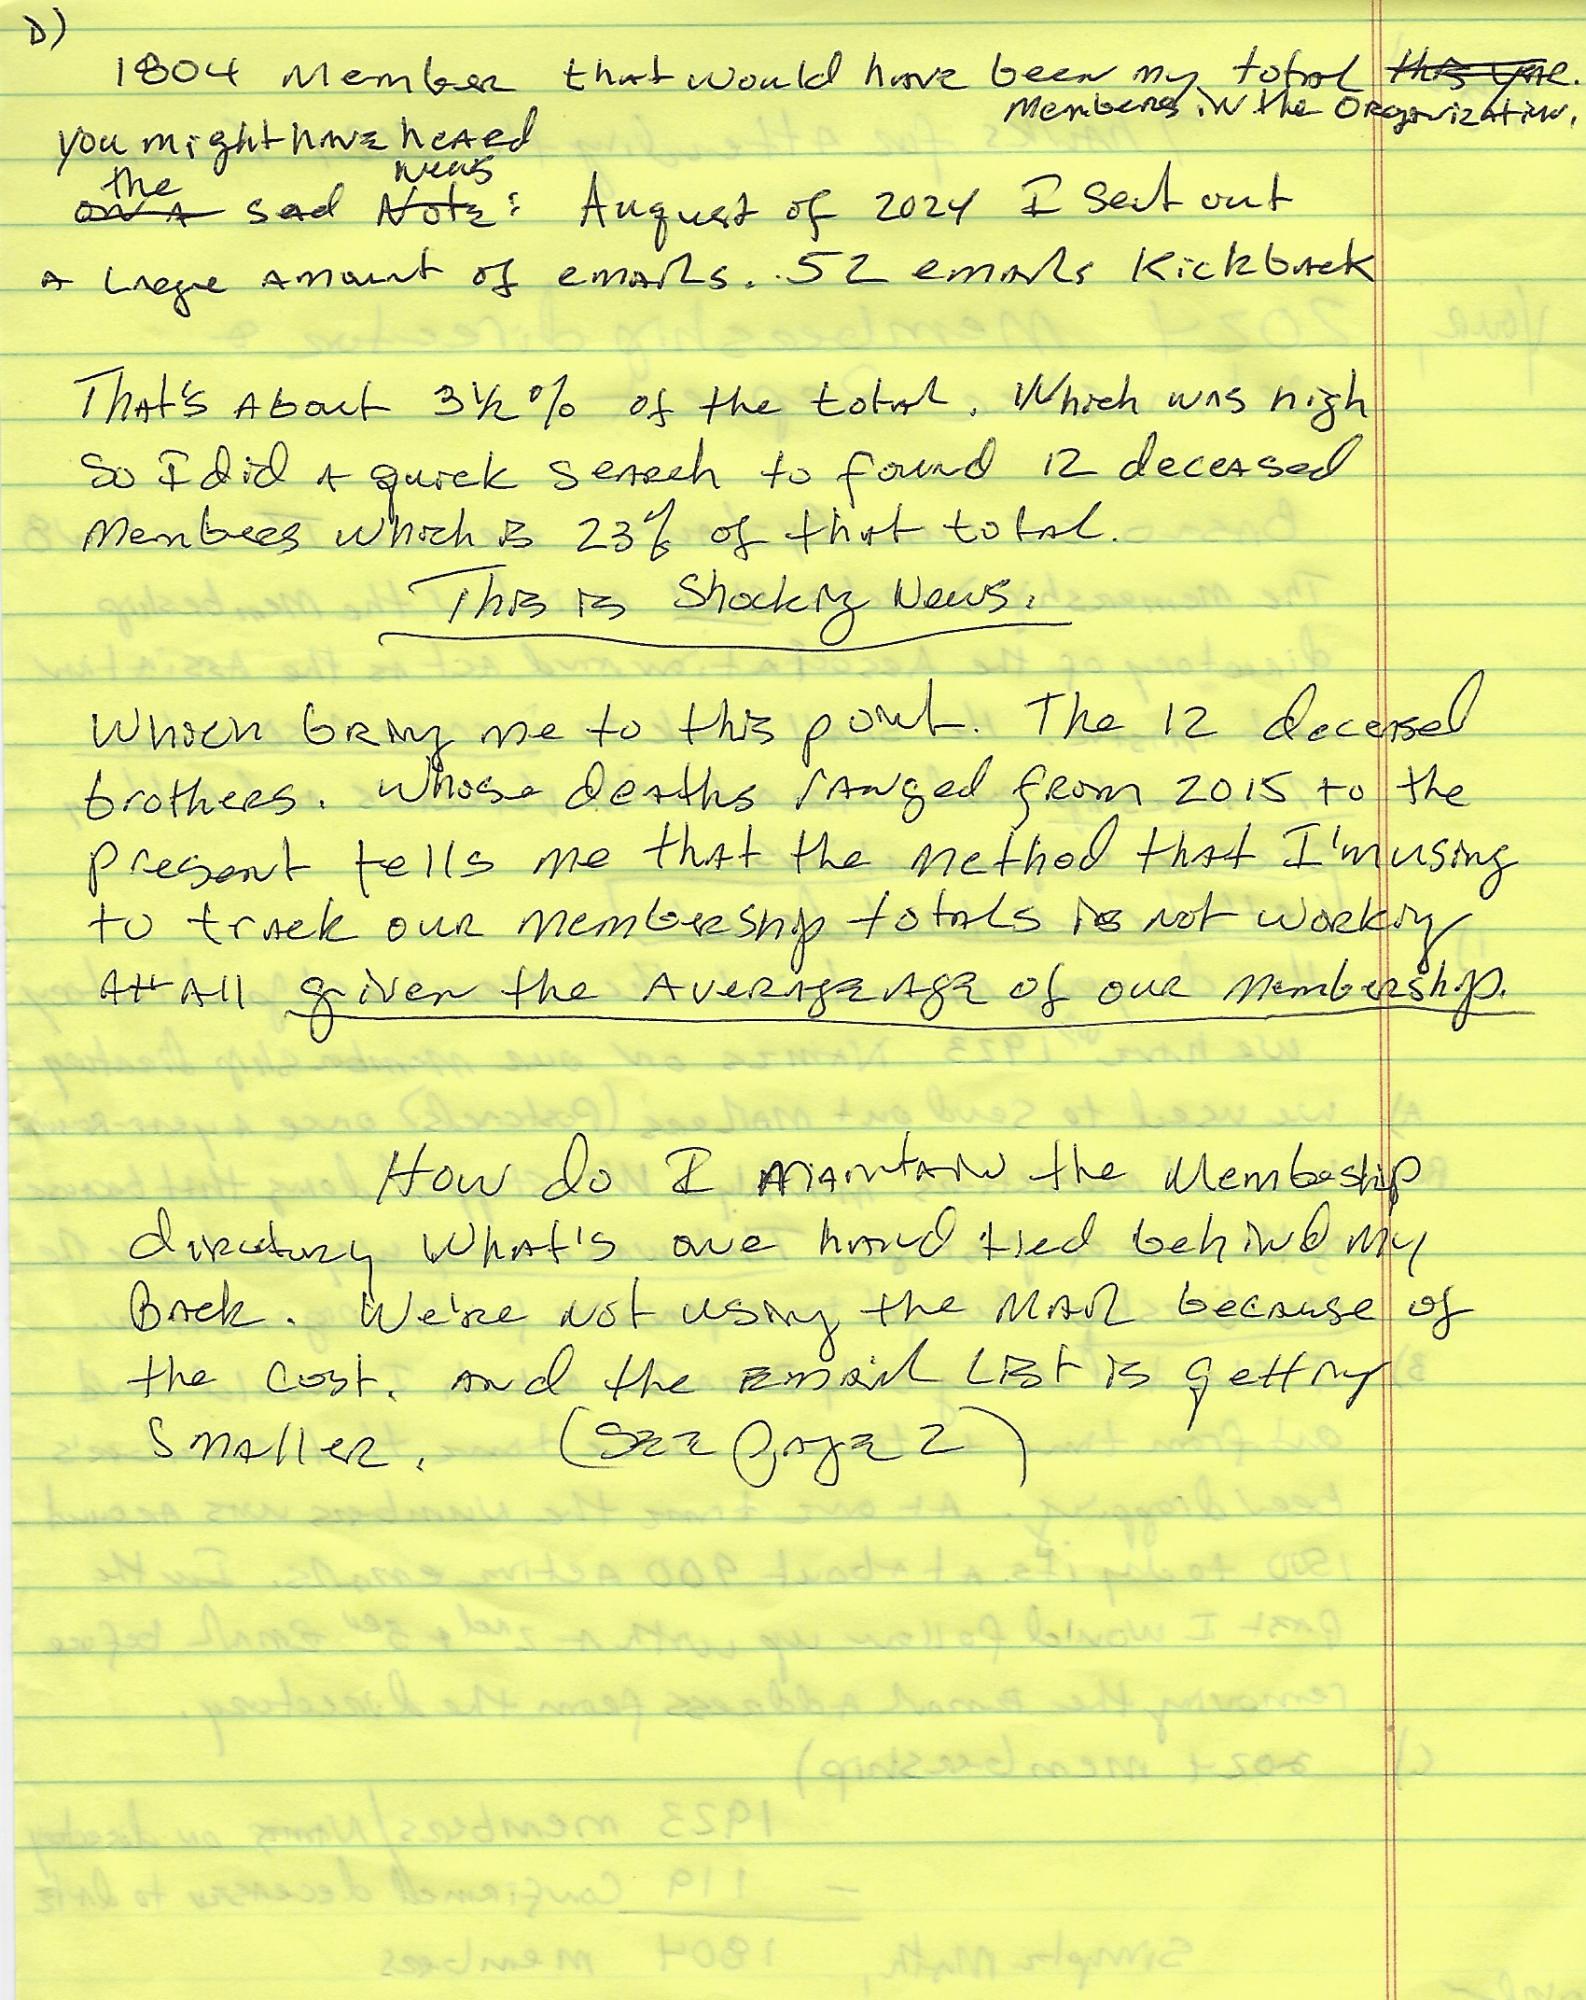 D)
1804 Member that would have been my total this year.
Members in the Organization.
you might have heard
the news
on a sad Note: August of 2024 I sent out
a large amount of emails. 52 emails Kickback
That's About 3½% of the total. Which was high
So I did a quick search to found 12 deceased
Members which is 23% of that total.
This is Shocking News.
Which bring me to this point. The 12 deceased
brothers. Whose deaths ranged from 2015 to the
present tells me that the method that I'm using
to track our membership totals is not working
At All given the average age of our membership.
How do I maintain the Membeship
directory What's one hand tied behind my
Back. We're not using the mail because of
the cost. and the email list is getting
smaller. (See page 2)